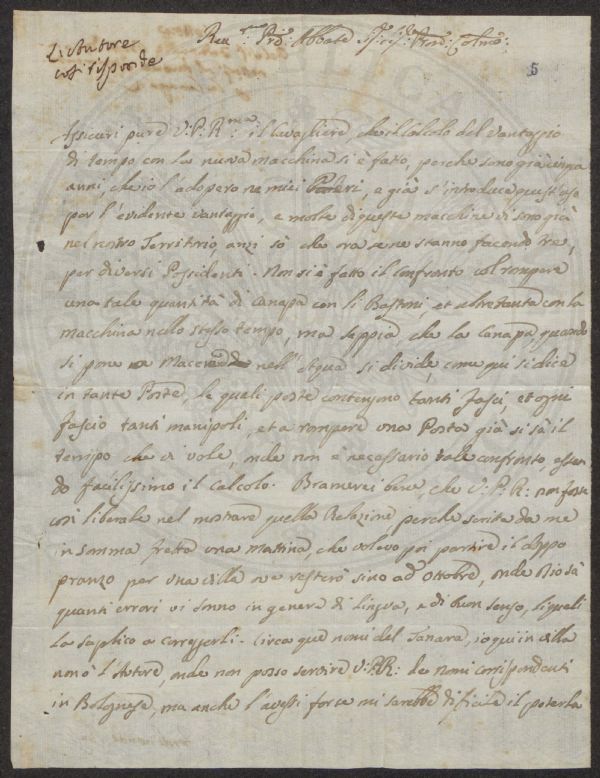 L'Autore
così risponde
Rev.mo Pre: Abbate Sig:r Sig:r Pron: Colmo:
5
Assicuri pure V: P: R:ma il Cavagliere, che il Calcolo del vantaggio
di tempo con la nuova macchina si è fatto, perche sono già cinque
anni, che io l'adopero ne miei Poderi, e già s'introduce quest'uso
per l'evidente vantaggio, e molte di queste macchine vi sono già
nel nostro Territorio, anzi sò che ora se ne stanno facendo tre,
per diversi Possidenti. Non si è fatto il Confronto col rompere
una tale quantità di Canapa con li Bastoni, et altretanta con la
macchina nello stesso tempo, ma sappia, che la Canapa quando
si pone a Macerare nell'Aqua si divide, come qui si dice
in tante Poste, le quali poste contengono tanti fasci, et ogni
fascio tanti manipoli, et a rompere una Posta già si sà il
tempo che vi vole, onde non è necessario tale confronto, essen
do facilissimo il Calcolo. Bramerei bene, che V: P: R: non fosse
così liberale nel mostrare quella Relazione perche scritta da me
in somma fretta una mattina, che volevo poi partire il doppo
pranzo per una villa ove resterò sino ad Ottobre, onde Dio sà
quanti errori vi sono in genere di lingua, e di buon senso, li quali
La suplico a correggerli. Circa que nomi del Tanara, io qui in villa
non ò l'Autore, onde non posso servire V: P: R: de nomi corrispondenti
in Bolognese, ma anche l'avessi forse mi sarebbe dificile il poterla